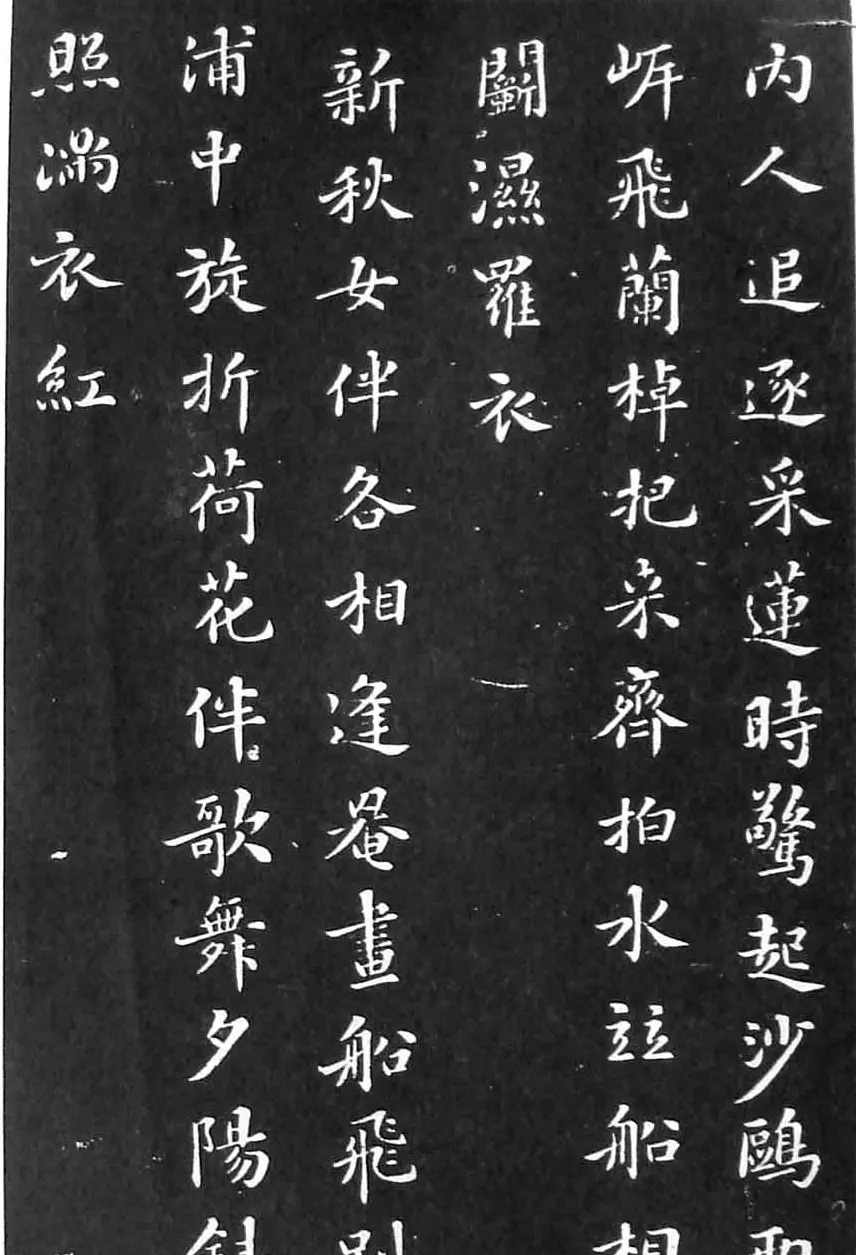 內人追逐采蓮時驚起沙鷗
岸飛蘭棹把来齊拍水竝船相
鬭濕羅衣
新秋女伴各相逢罨畫船飛
浦中旋折荷花伴歌舞夕陽
照滿衣紅